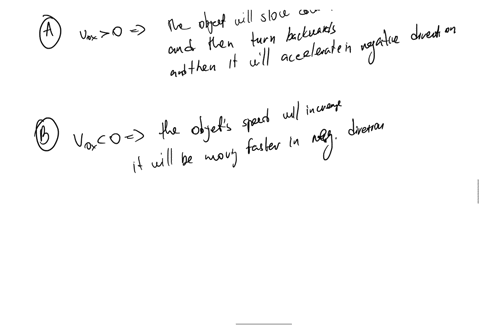 (A) V₀ₓ>0 => the object will slow
and then turn backwards
and then it will accelerate in negative direction
(B) V₀ₓ<0 => the objet's speed will increase
it will be movig faster in neg. direction